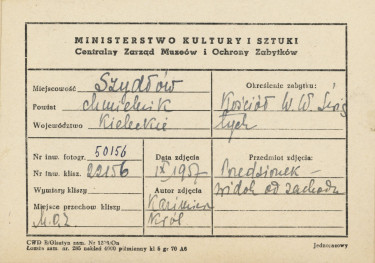 MINISTERSTWO KULTURY I SZTUKI
Centralny Zarząd Muzeów i Ochrony Zabytków
Miejscowość Szydłów
Powiat chmielnik
Województwo Kieleckie
Określenie zabytku:
Kościół W.W. Świę
tych
Nr inw. fotogr. 50156
Nr inw. klisz. 22156
Wymiary kliszy
Miejsce przechow kliszy
M.O.Z.
Data zdjęcia
IX 1957
Autor zdjęcia
Kazimierz
Król
Przedmiot zdjęcia:
Przedsionek -
widok od zachodu
CWD B/Olsztyn zam. Nr
Zamów zam. nr. 295 nakład 4000 piśmienny kl 5 gr 70 A6
Jednorazowy